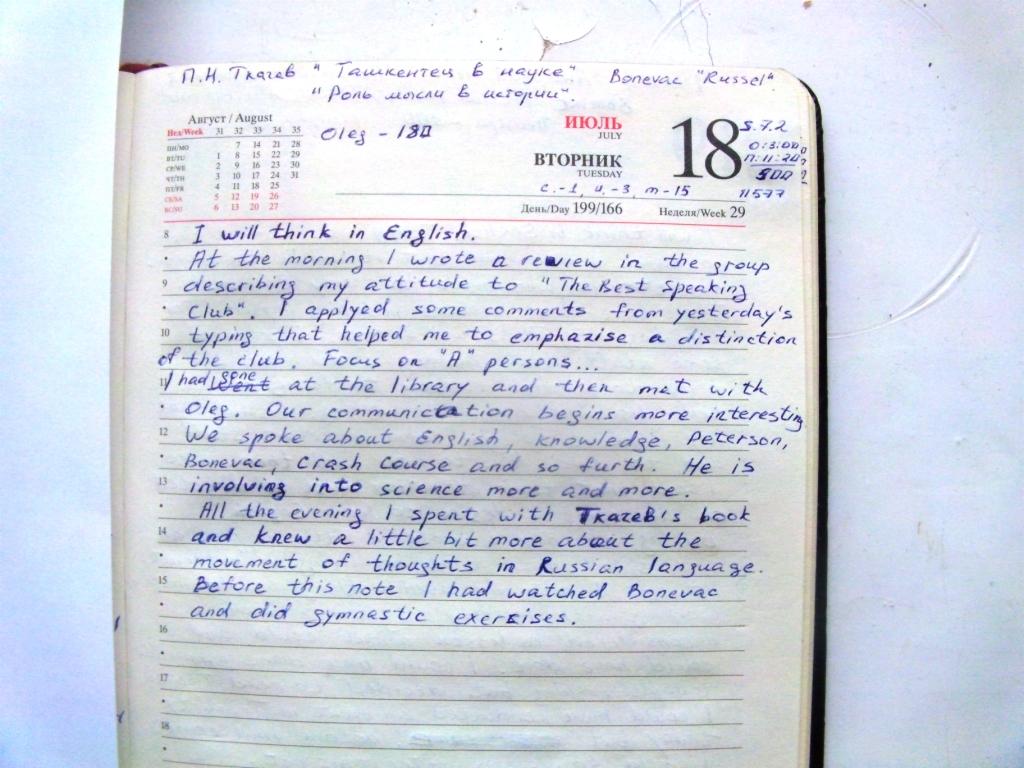 П.Н. Ткачев "Ташкентец в науке" Bonevac "Russel"
"Роль мысли в истории"
Август / August
Нед/Week 31 32 33 34 35
ПН/MO 7 14 21 28
ВТ/TU 1 8 15 22 29
СР/WE 2 9 16 23 30
ЧТ/TH 3 10 17 24 31
ПТ/FR 4 11 18 25
СБ/SA 5 12 19 26
ВС/SU 6 13 20 27
Oleg - 180
ИЮЛЬ
JULY
18
ВТОРНИК
TUESDAY
5.7.2
500
11577
с.-1, и.-3, т-15
День/Day 199/166 Неделя/Week 29
8 I will think in English.
At the morning I wrote a review in the group
9 describing my attitude to "The Best Speaking
Club". I applyed some comments from yesterday's
10 typing that helped me to emphazise a distinction
of the club. Focus on "A" persons...
11 I had gone went at the library and then met with
Oleg. Our communication begins more interesting
12 We spoke about English, knowledge, Peterson,
Bonevac, Crash Course and so furth. He is
13 involving into science more and more.
All the evening I spent with Ткачев's book
14 and knew a little bit more about the
movement of thoughts in Russian language.
15 Before this note I had watched Bonevac
and did gymnastic exersises.
16
17
18